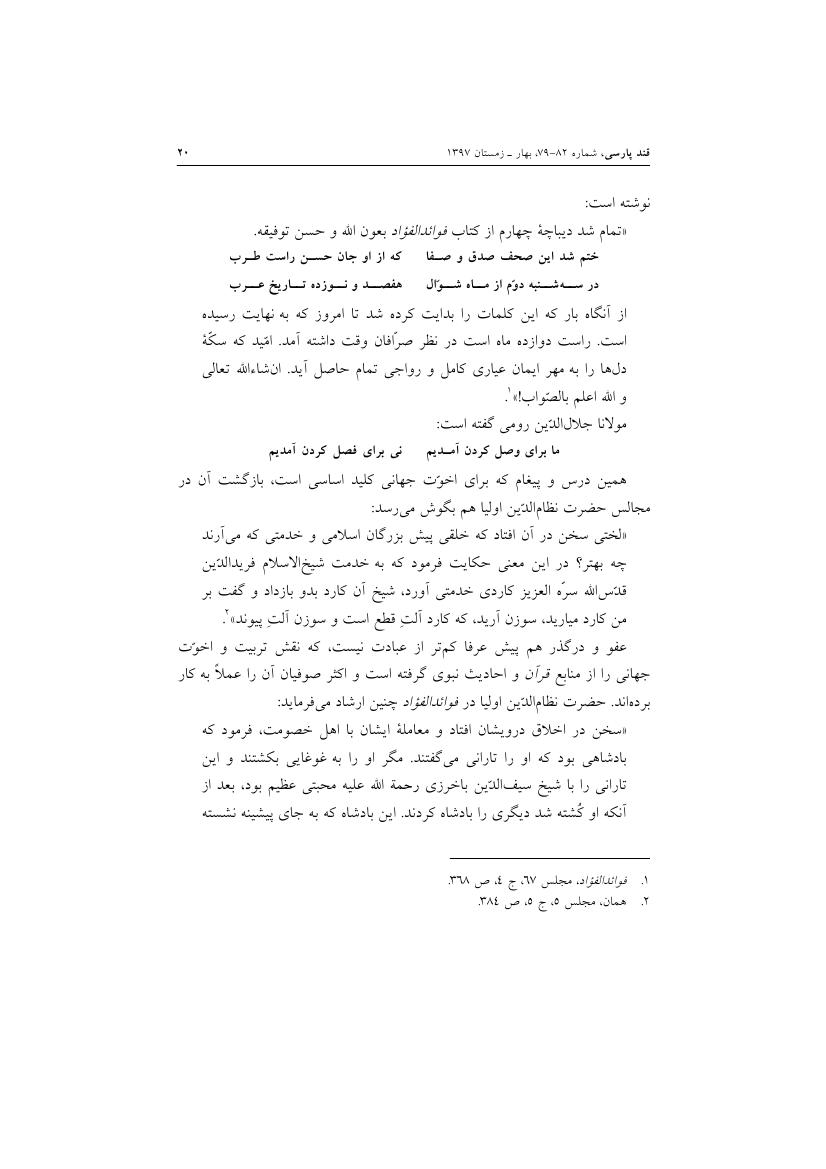 قند پارسی، شماره ۸۲-۷۹، بهار ـ زمستان ۱۳۹۷ ۲۰
نوشته است:
«تمام شد دیباچهٔ چهارم از کتاب فوائدالفؤاد بعون الله و حسن توفیقه.
ختم شد این صحف صدق و صـفا که از او جان حســن راست طـرب
در ســه‌شــنبه دوّم از مــاه شــوّال هفصــد و نــوزده تــاریخ عــرب
از آنگاه بار که این کلمات را بدایت کرده شد تا امروز که به نهایت رسیده
است. راست دوازده ماه است در نظر صرّافان وقت داشته آمد. امّید که سکّهٔ
دل‌ها را به مهر ایمان عیاری کامل و رواجی تمام حاصل آید. ان‌شاءالله تعالی
و الله اعلم بالصّواب!»۱.
مولانا جلال‌الدّین رومی گفته است:
ما برای وصل کردن آمـدیم نی برای فصل کردن آمدیم
همین درس و پیغام که برای اخوّت جهانی کلید اساسی است، بازگشت آن در
مجالس حضرت نظام‌الدّین اولیا هم بگوش می‌رسد:
«لختی سخن در آن افتاد که خلقی پیش بزرگان اسلامی و خدمتی که می‌آرند
چه بهتر؟ در این معنی حکایت فرمود که به خدمت شیخ‌الاسلام فریدالدّین
قدّس‌الله سرّه العزیز کاردی خدمتی آورد، شیخ آن کارد بدو بازداد و گفت بر
من کارد میارید، سوزن آرید، که کارد آلتِ قطع است و سوزن آلتِ پیوند»۲.
عفو و درگذر هم پیش عرفا کم‌تر از عبادت نیست، که نقش تربیت و اخوّت
جهانی را از منابع قرآن و احادیث نبوی گرفته است و اکثر صوفیان آن را عملاً به کار
برده‌اند. حضرت نظام‌الدّین اولیا در فوائدالفؤاد چنین ارشاد می‌فرماید:
«سخن در اخلاق درویشان افتاد و معاملهٔ ایشان با اهل خصومت، فرمود که
بادشاهی بود که او را تارانی می‌گفتند. مگر او را به غوغایی بکشتند و این
تارانی را با شیخ سیف‌الدّین باخرزی رحمة الله علیه محبتی عظیم بود، بعد از
آنکه او کُشته شد دیگری را بادشاه کردند. این بادشاه که به جای پیشینه نشسته
۱. فوائدالفؤاد، مجلس ۶۷، ج ٤، ص ۳٦۸.
۲. همان، مجلس ٥، ج ٥، ص ۳۸٤.